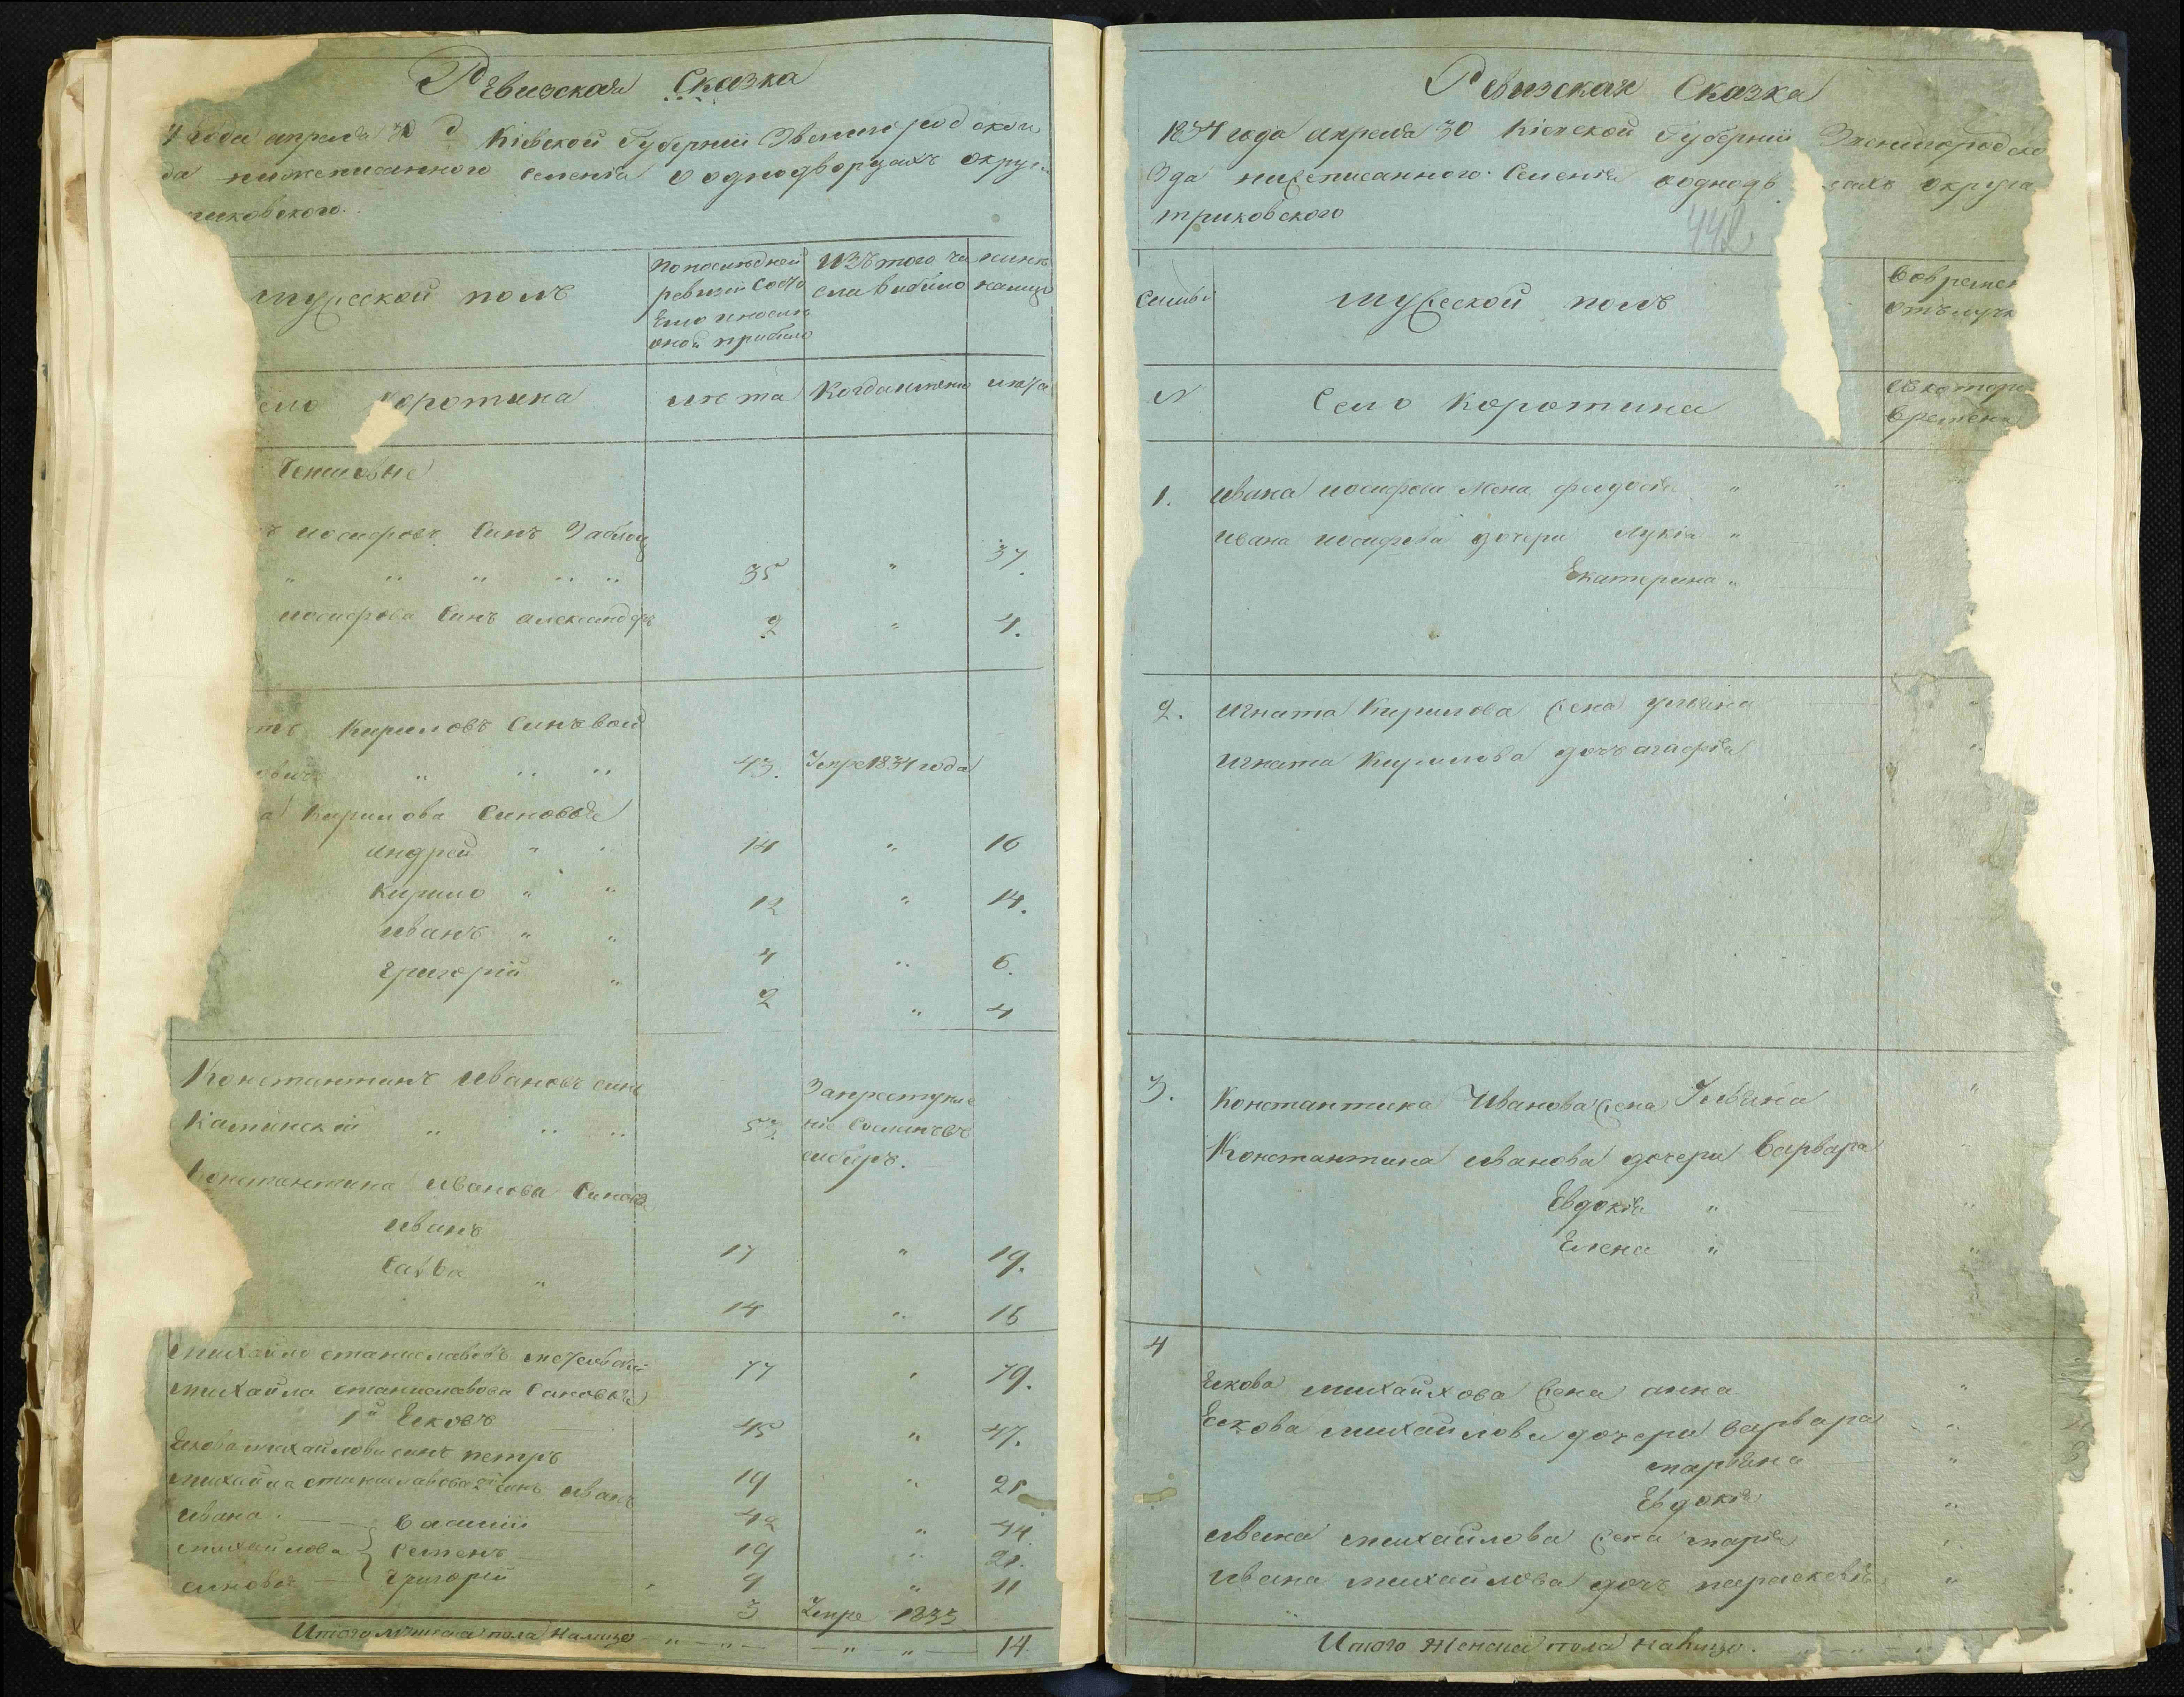 Ревизская Сказка
4 года апреля 30 д Кіевской Губерніи Звенигородского
да нижеписанного селенія о однодворцахъ округа
риковского.
мужеской полъ
По последней ревизіи состояло и после оной прибило
Изъ того числа вибило
ныне налицо
ело Коротина
лета
Когда именно
лета
Чиншовые
ъ иосифовъ Синъ Заблоц
" " " " " 35 " 37.
иосифова Синъ александръ 2 " 4.
тъ Кириловъ Синъ вой
овичъ " " " 43. Умре 1834 года
а Кирилова Синовья
Андрей " " 14 " 16
Кирило " " 12 " 14.
иванъ " " 4 " 6.
григорій " 2 " 4
Константинъ Ивановъ синъ
Каминскій " " " 53. За преступленіе сосланъ въ сибиръ.
Константина Иванова Синовя
иванъ 17 " 19.
Савва " 14 " 16
михайло станиславовъ 77 " 79.
михайла станиславова Синовья
1й Есковъ 45 " 47.
Ескова михайлова синъ петръ 19 " 21
михайла станиславова 2й синъ иванъ 42 " 44.
ивана Василій 19 " 21.
михайлова Семенъ 9 " 11
синовя Григорій " 3 Умре 1833
Итого мужеска пола налицо " " " " 14
Ревизская Сказка
1834 года апреля 30 Кіевской Губерніи Звенигородско
Зда нижеписанного Селенія о однодв цахъ округа
триковского
442
Семьи
мужеской полъ
Во времен
отлучк
N
Село Коротина
Съ которо
времени
1. ивана иосифова жена федосія " "
ивана иосифова дочери Лукія "
Екатерина "
2. игната Кирилова жена улияна "
игната Кирилова дочь агафія "
3. Константина Иванова жена Улияна "
Константина иванова дочери Варвара "
Евдокія " "
Елена " "
4
Ескова михайлова жена анна "
Ескова михайлова дочери варвара "
марияна "
Евдокія "
ивана михайлова жена марія "
ивана михайлова дочь параскевія "
Итого Женска пола налицо. " " "